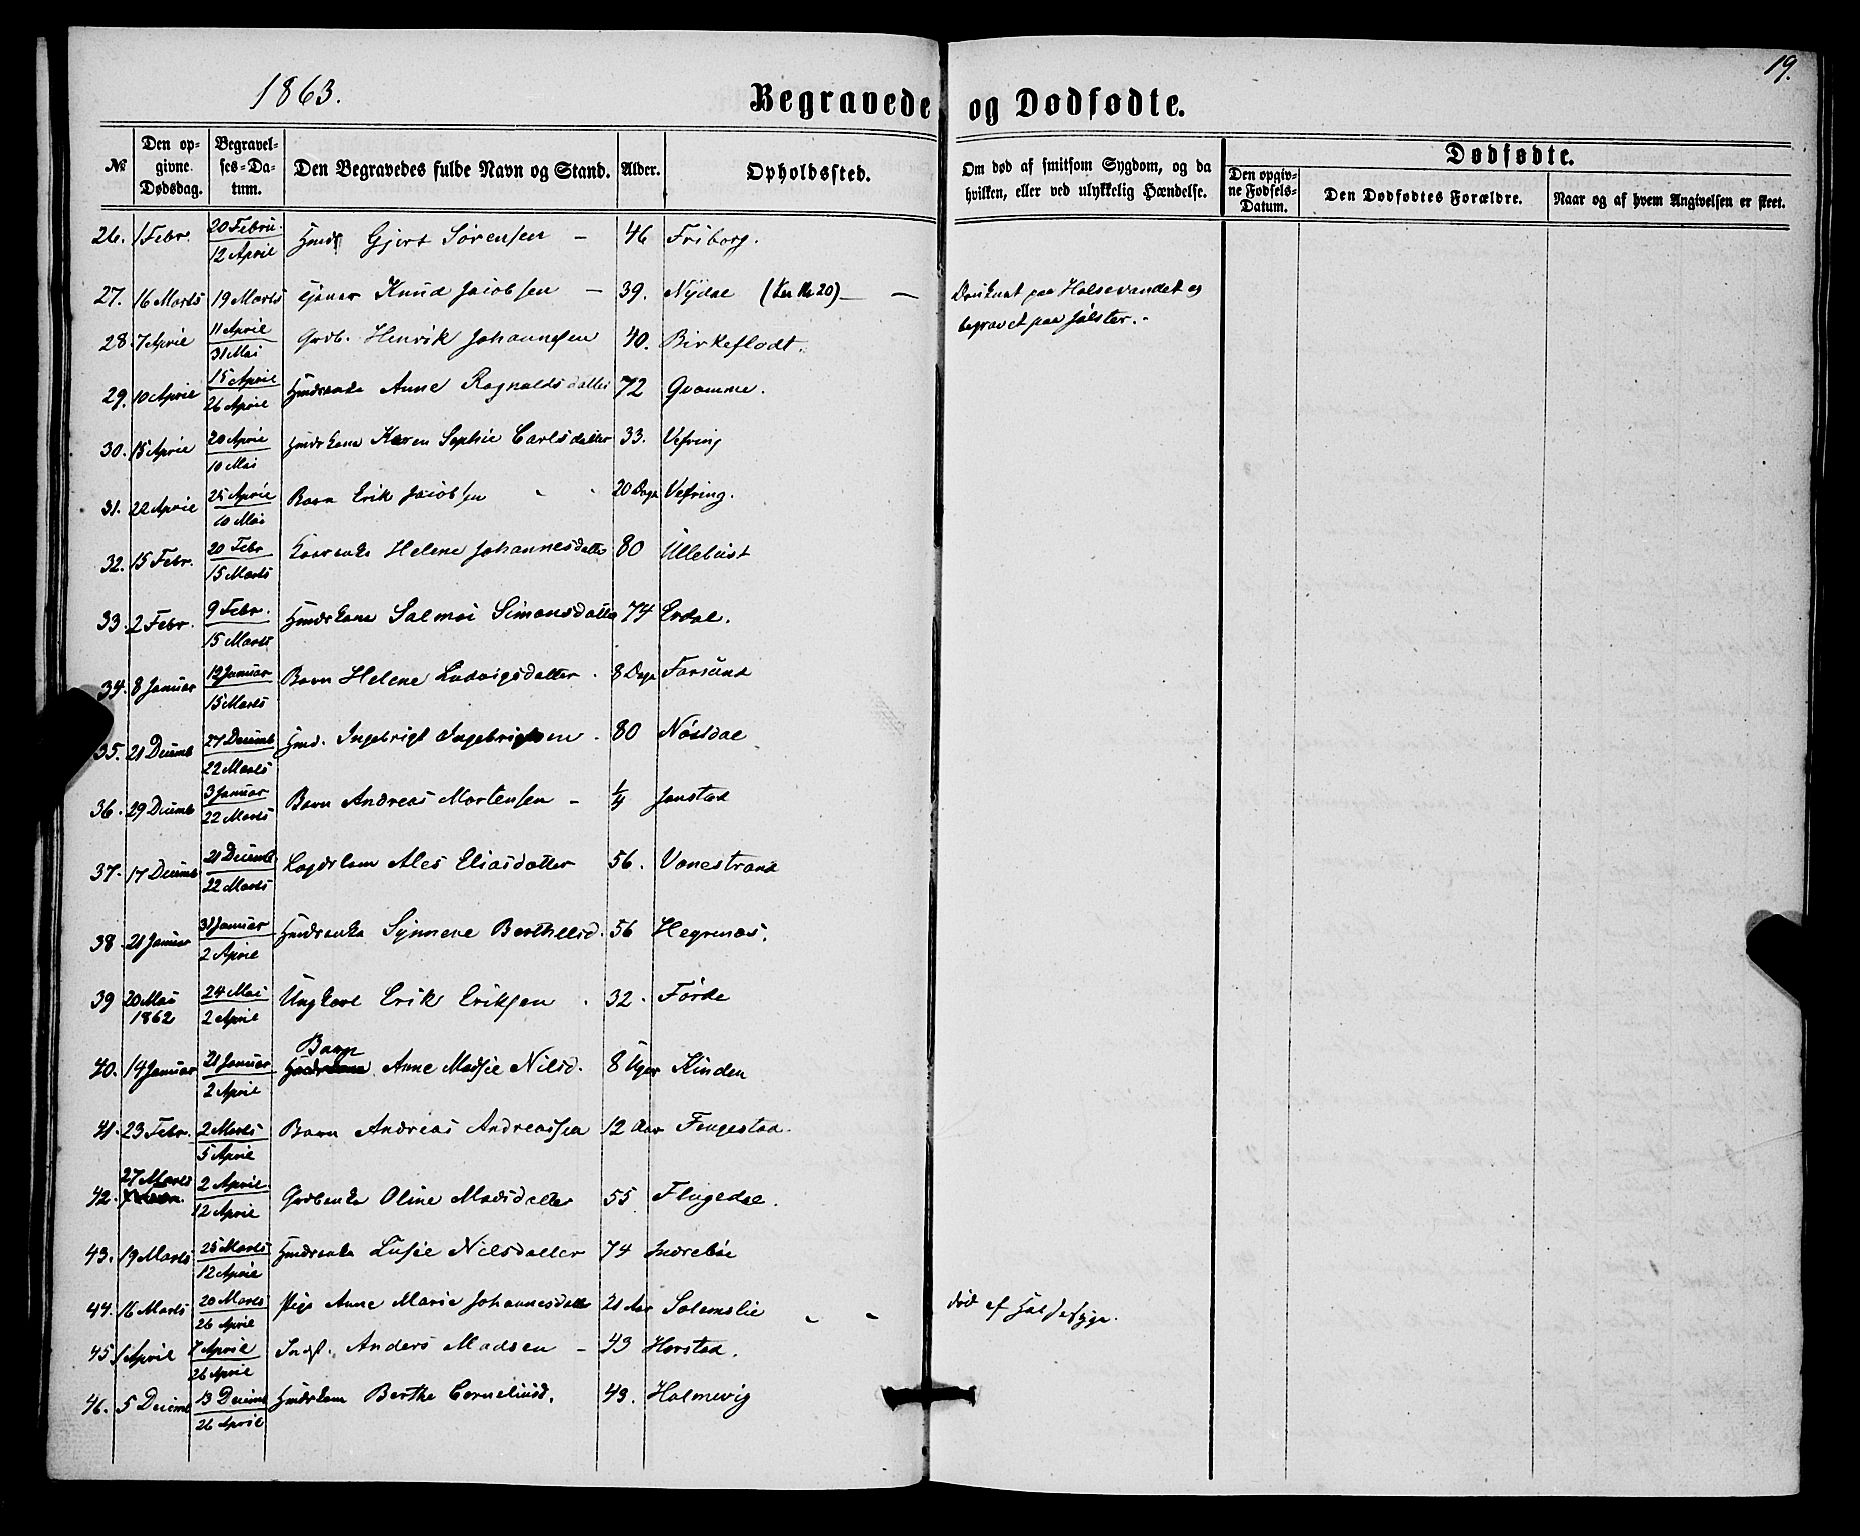 1863.
19.
Begravede og Dødfødte.
№
Den opgivne Dødsdag.
Begravelses-Datum.
Den Begravedes fulde Navn og Stand.
Alder.
Opholdssted.
Om død af smitsom Sygdom, og da hvilken, eller ved ulykkelig Hændelse.
Dødfødte.
Den opgivne Fødsels-Datum.
Den Dødfødtes Forældre.
Naar og af hvem Angivelsen er skeet.
26. 1 Febr. 20 Febru. 12 April Gjert Sørensen - 46 Friborg.
27. 16 Marts 19 Marts Knud Jacobsen - 39. Nydal
Druknet paa Holsevandet og
begravet paa Jølster.-
28. 7 April 11 April 31 Mai Grdb. Henrik Johannesen 40. Birkeflodt.
29. 10 April 15 April 26 April Hmdsenke Anne Ragnaldsdatter 72 Qvamme.
30. 15 April 20 April 10 Mai Hmdskone Karen Sophie Carlsdatter 33. Vefring
31. 22 April 25 April 10 Mai Barn Erik Jacobsen 20 Dage Vefring.
32. 15 Febr. 20 Febr 15 Marts Helene Johannesdatter 80 Ullebust
33. 2 Febr. 9 Febr. 15 Marts Hmdskone Salmoi Simonsdatter 74 Erdal.
34. 8 Januar 12 Januar 15 Marts Barn Helene Ludvigsdatter. 8 Dage Farsund
35. 21 Decemb 27 Decemb 22 Marts Hmd. Ingebrigt Ingebrigtsen. 80 Nøstdal
36. 29 Decemb 3 Januar 22 Marts Barn Andreas Mortensen - 1/4 Jonstad
37. 17 Decemb 21 Decemb 22 Marts Ales Eliasdatter 56. Vonestrand
38. 21 Januar 31 Januar 2 April Hmdsenke Synneve Berthelsd. 56 Hegrenæs.
39 20 Mai 1862 24 Mai 2 April Ungkarl Erik Eriksen. 32. Førde
40. 14 Januar 21 Januar 2 April Barn Anne Madsie Nilsd. 8 Uger Kinden
41. 23 Febr. 2 Marts 5 April Barn Andreas Andreassen 12 Aar Fengestad.
42. 27 Marts 2 April 12 April Grdbenke Oline Madsdatter 55 Flugedal.
43. 19 Marts 25 Marts 12 April Hmdsenke Lusie Nilsdatter 74 Indrebøe
44. 16 Marts 20 Marts 26 April Pige Anne Marie Johannesdatter 21 Aar Solemslie
død af Halsesyge.
45 1 April 7 April 26 April Indst. Anders Madsen - 43 Horstad.
46. 5 Decemb 13 Decemb 26 April Berthe Corneliusd. 43. Holmevig